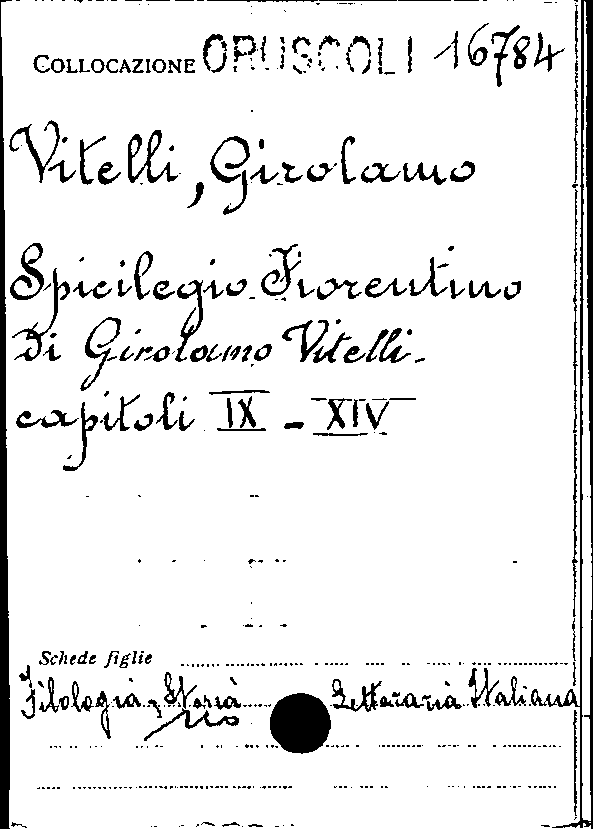 COLLOCAZIONE OPUSCOLI 16784
Vitelli, Girolamo
Spicilegio Fiorentino
Di Girolamo Vitelli -
capitoli IX - XIV
Schede figlie
Filologia, Storia Letteraria Italiana
no